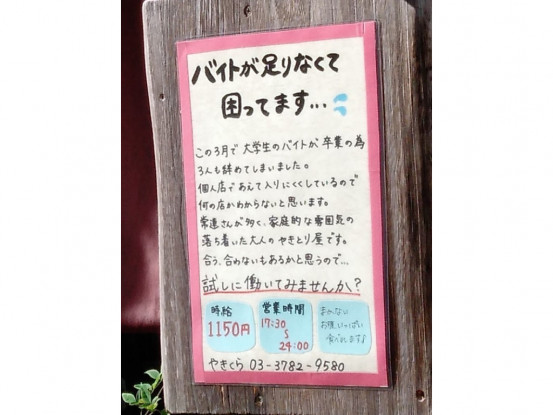 バイトが足りなくて
困ってます...
この3月で大学生のバイトが卒業の為
3人も辞めてしまいました。
個人店であえて入りにくくしているので
何の店かわからないと思います。
常連さんが多く、家庭的な雰囲気の
落ち着いた大人のやきとり屋です。
合う、合わないもあるかと思うので...
試しに働いてみませんか?
時給
1150円
営業時間
17:30
〜
24:00
まかない
お腹いっぱい
食べれます♪
やきくら 03-3782-9580